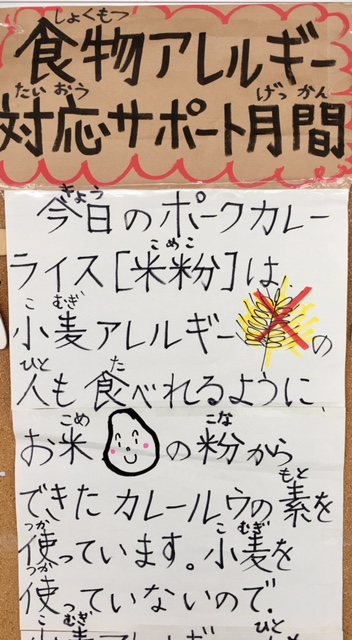 しょくもつ
食物アレルギー
たいおう げっかん
対応サポート月間
きょう
今日のポークカレー
こめこ
ライス[米粉]は
こむぎ
小麦アレルギーの
ひと た
人も食べれるように、
こめ こな
お米の粉から
もと
できたカレールウの素を
つか こむぎ
使っています。小麦を
つか
使っていないので、
こむぎ ひと
小麦アレルギー